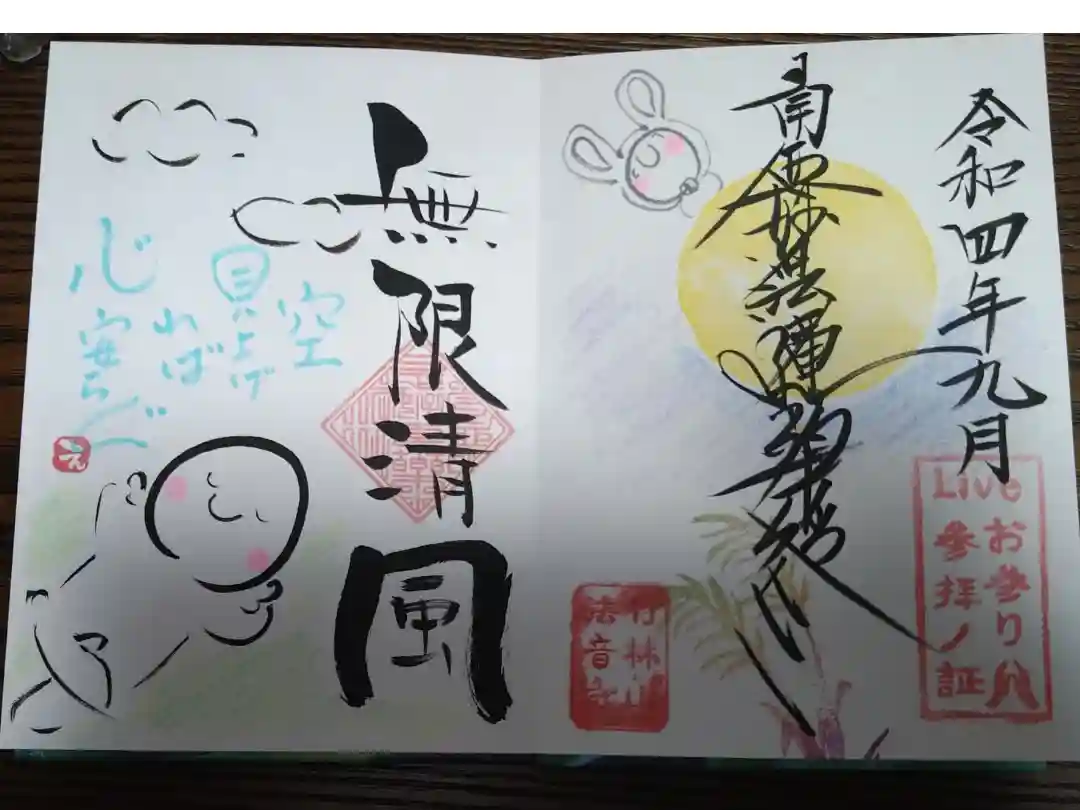 令和四年九月
南無妙法蓮華経
Live
お参り
参拝ノ証
竹林山
法音寺
無限清風
空
見上げ
れば
心
安らぐ
え